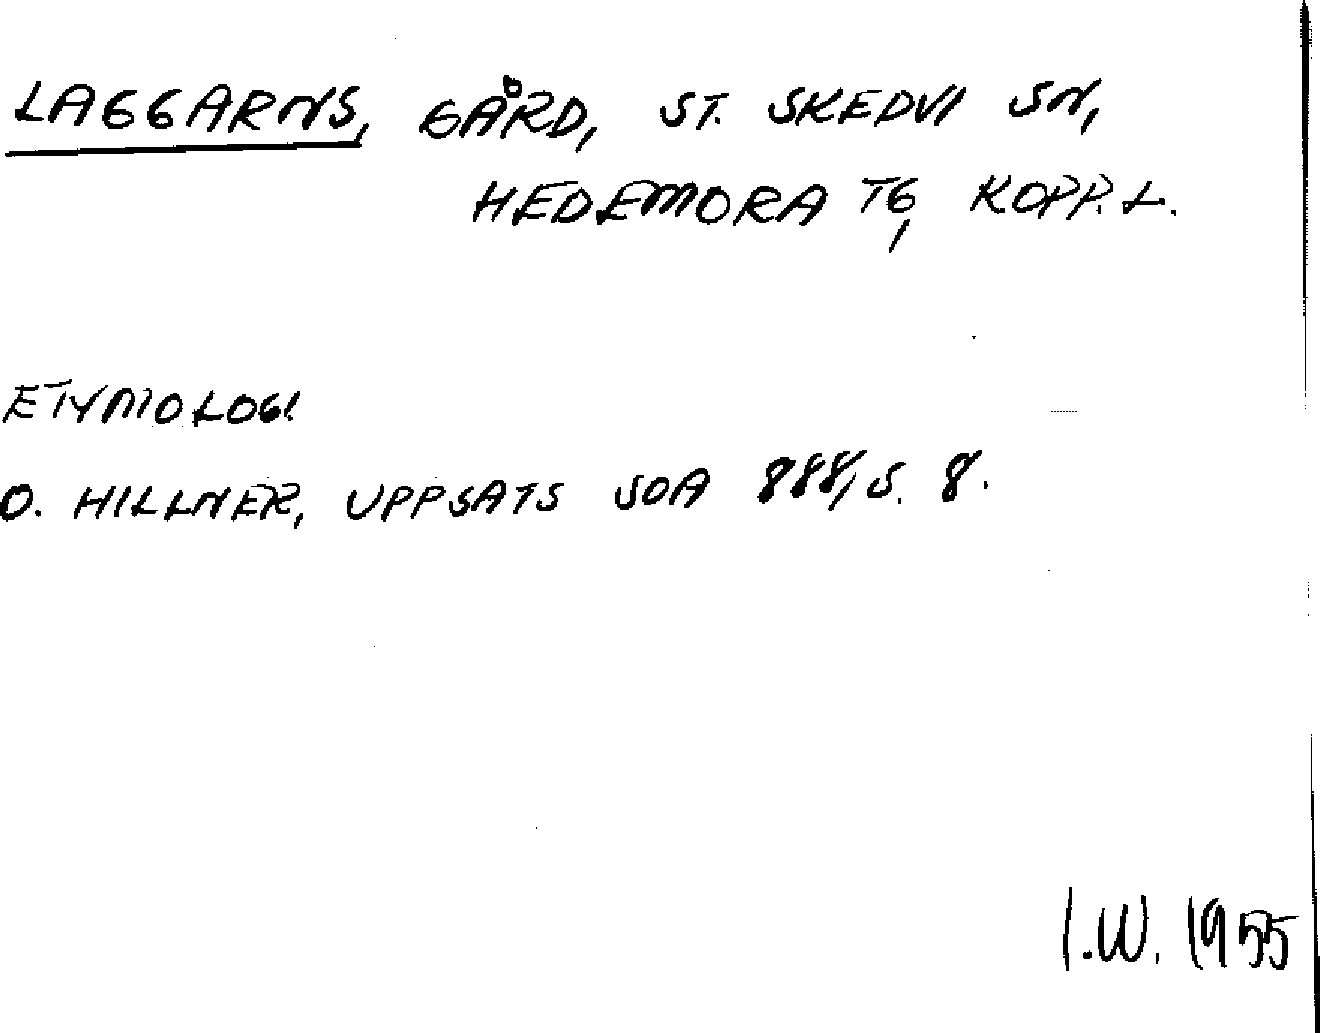 LAGGARNS, GÅRD, ST. SKEDVI SN,
HEDEMORA TG, KOPP. L.
ETYMOLOGI
O. HILLNER, UPPSATS SOA 888, S. 8.
I.W. 1955